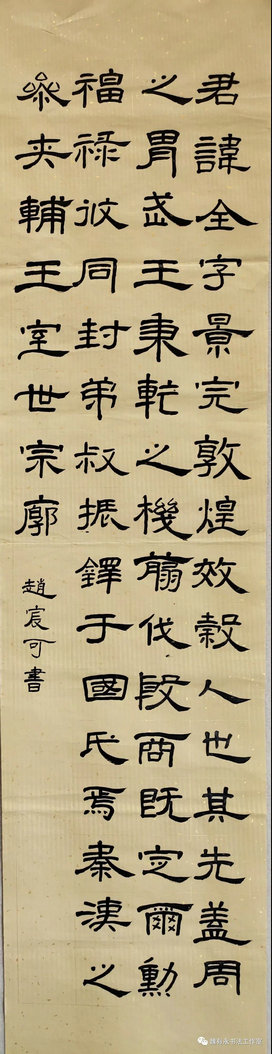 君諱全字景完敦煌效穀人也其先蓋周
之胄武王秉乾之機翦伐殷商既定爾勳
福祿攸同封弟叔振鐸于國氏焉秦漢之
參夾輔王室世宗廓
趙宸可書
书法工作室